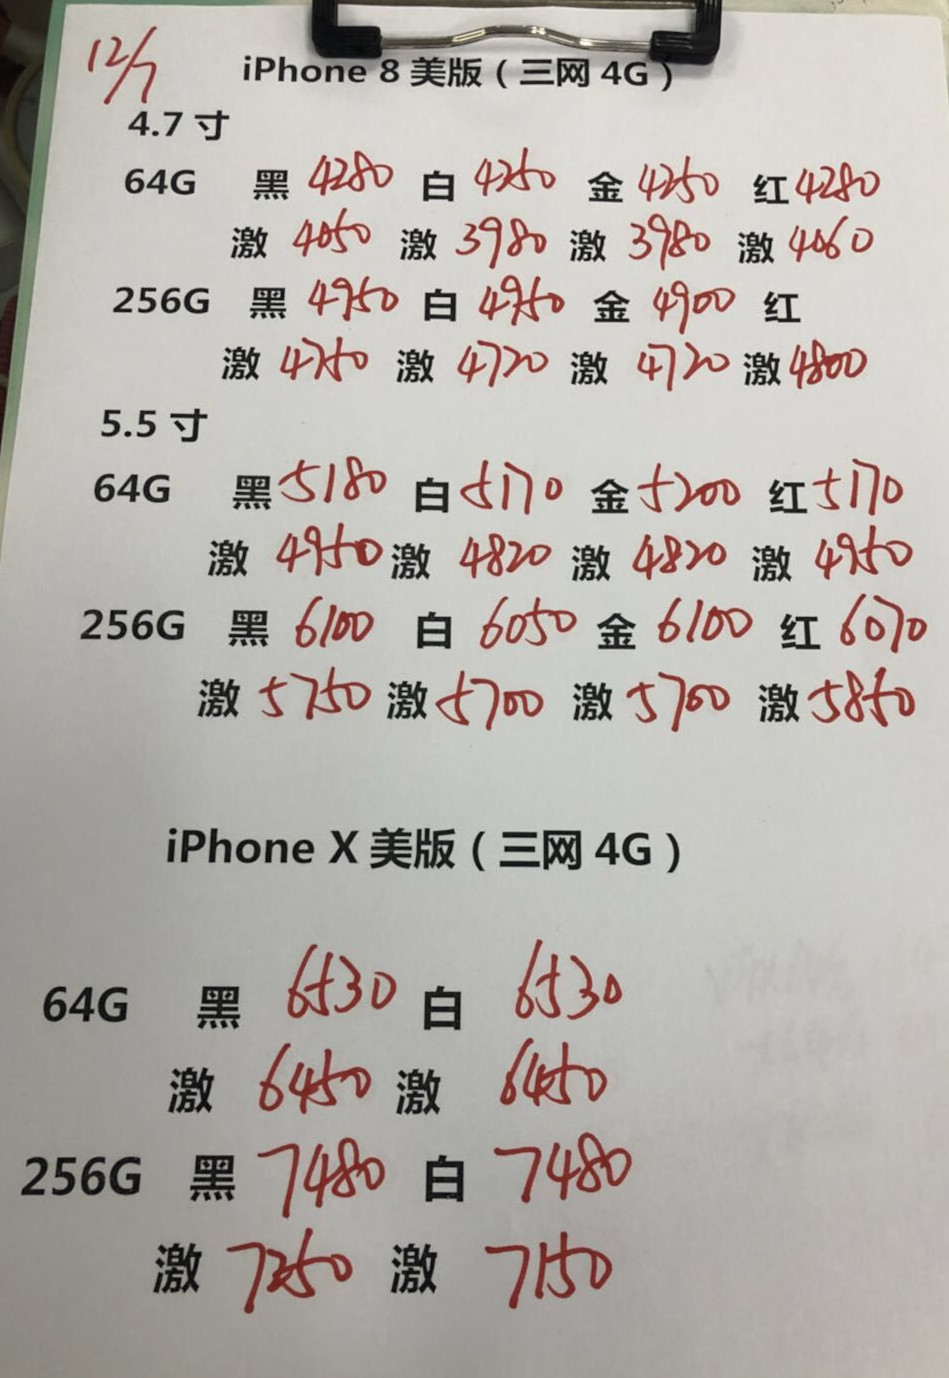 12/7
iPhone 8 美版（三网 4G）
4.7 寸
64G 黑 4280 白 4250 金 4250 红 4280
激 4050 激 3980 激 3980 激 4060
256G 黑 4950 白 4950 金 4900 红
激 4750 激 4720 激 4720 激 4800
5.5 寸
64G 黑 5180 白 5170 金 5200 红 5170
激 4950 激 4820 激 4820 激 4950
256G 黑 6100 白 6050 金 6100 红 6070
激 5750 激 5700 激 5700 激 5850
iPhone X 美版（三网 4G）
64G 黑 6530 白 6530
激 6450 激 6450
256G 黑 7480 白 7480
激 7250 激 7150